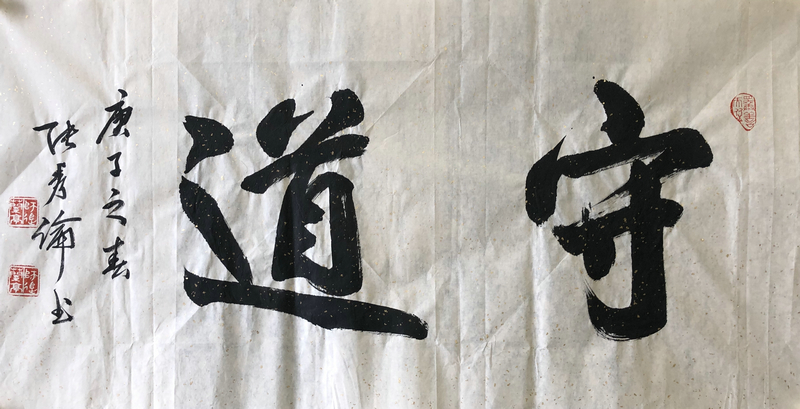 守道
庚子之春
张秀倫书